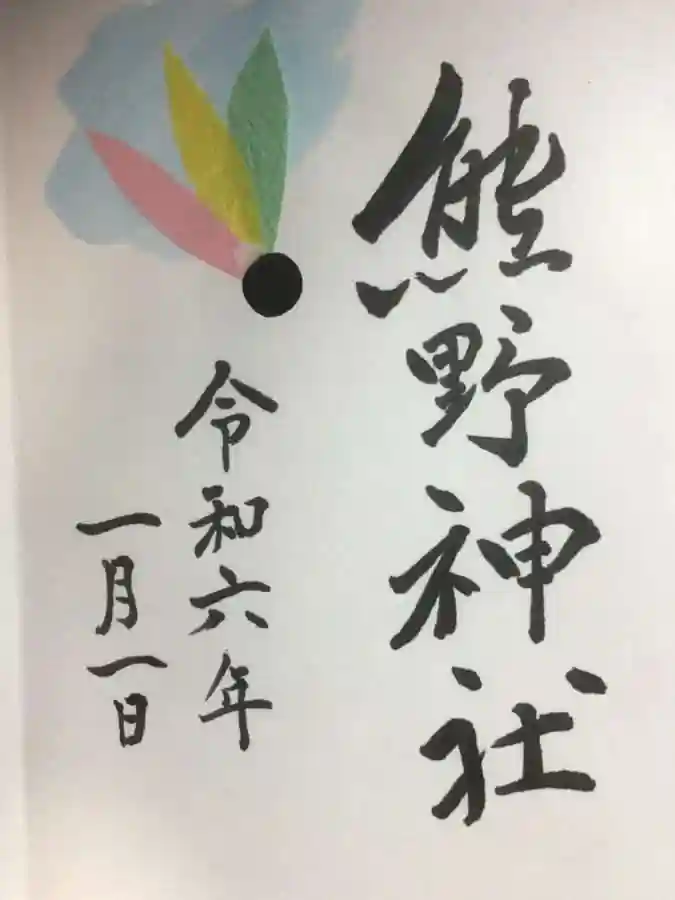 熊野神社
令和六年
一月一日